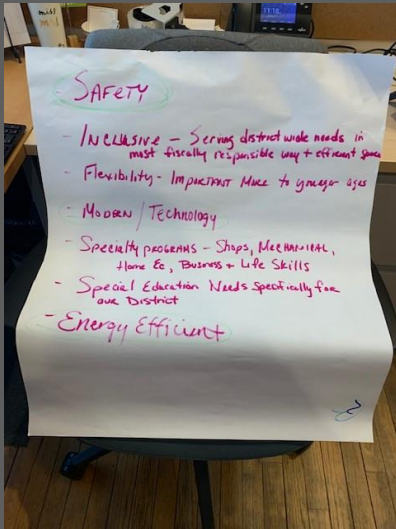 - SAFETY
- INCLUSIVE - Serving district wide needs in
most fiscally responsible way + efficient space
- Flexibility - IMPORTANT MORE to younger ages
- MODERN / Technology
- Specialty PROGRAMS - Shops, MECHANICAL,
Home Ec, Business + Life Skills
- Special Education Needs Specifically for
our District
- Energy Efficient